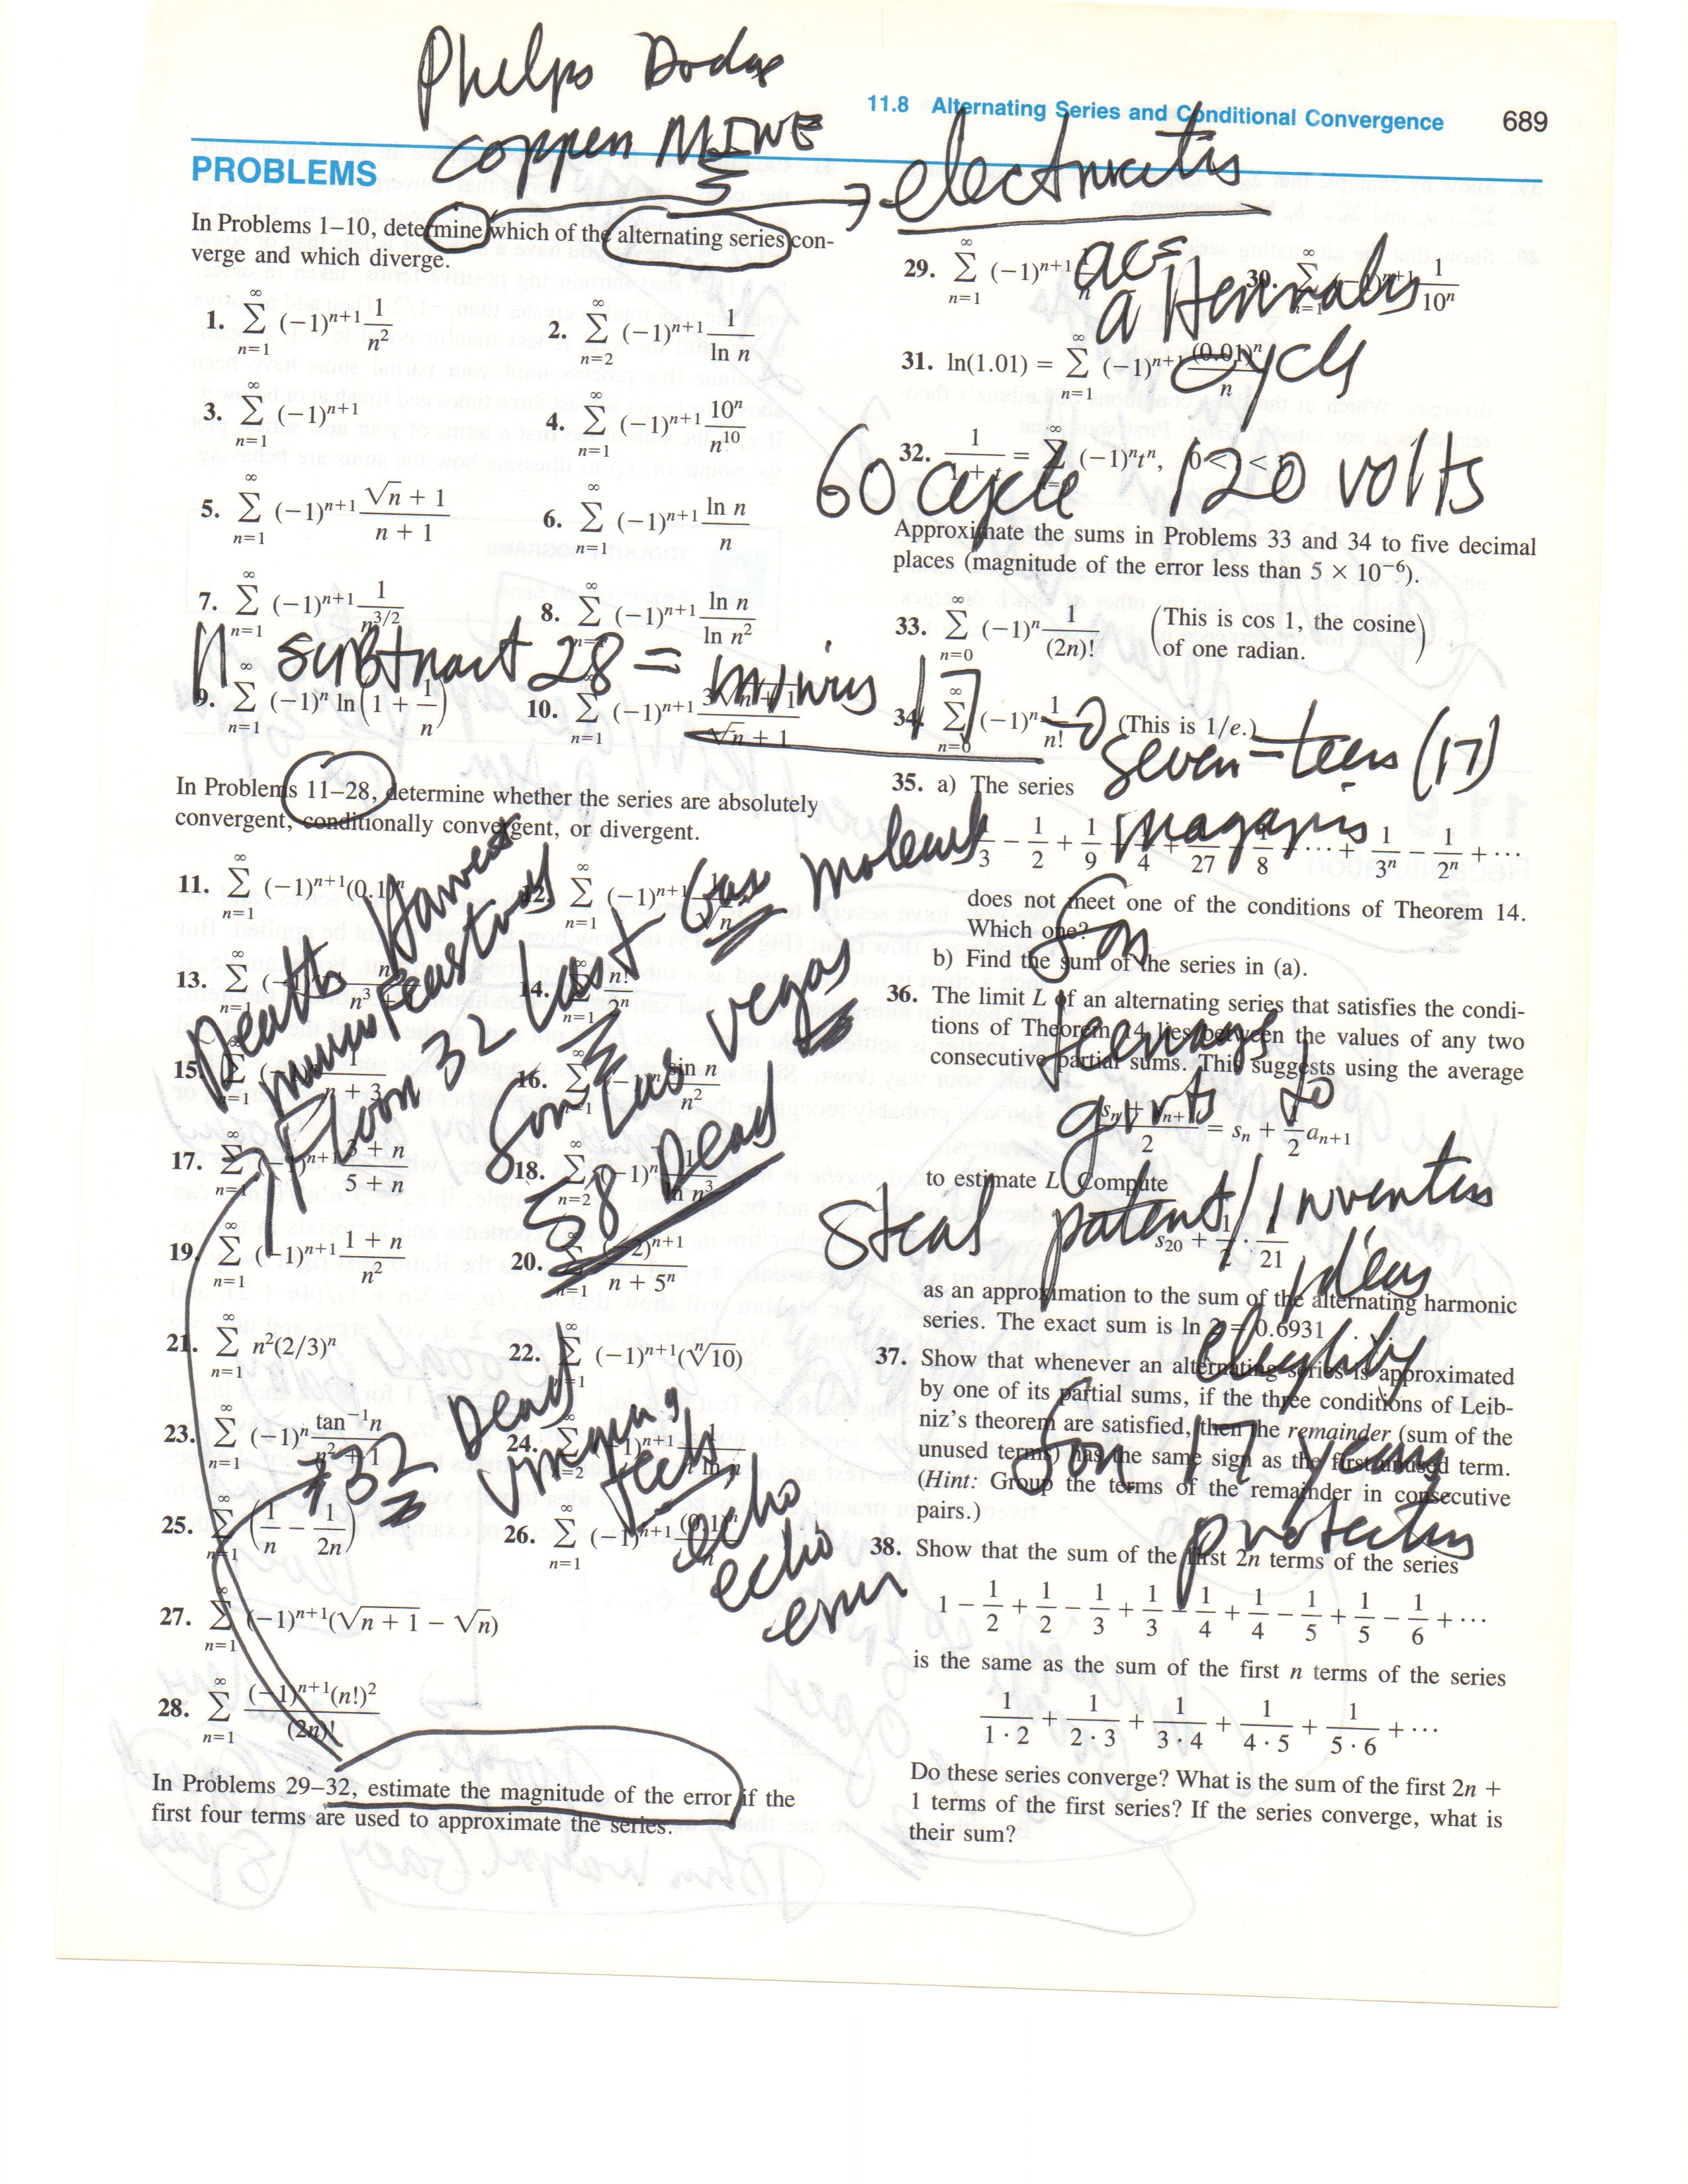 Phelps Dodge
copper MINE
11.8 Alternating Series and Conditional Convergence 689
PROBLEMS
electricity
In Problems 1–10, determine which of the alternating series con-
verge and which diverge.
1. ∑_{n=1}^{∞} (−1)^{n+1} 1/n²
2. ∑_{n=2}^{∞} (−1)^{n+1} 1/ln n
3. ∑_{n=1}^{∞} (−1)^{n+1}
4. ∑_{n=1}^{∞} (−1)^{n+1} 10ⁿ/n¹⁰
5. ∑_{n=1}^{∞} (−1)^{n+1} (√n + 1)/(n + 1)
6. ∑_{n=1}^{∞} (−1)^{n+1} ln n/n
7. ∑_{n=1}^{∞} (−1)^{n+1} 1/n^{3/2}
8. ∑_{n=1}^{∞} (−1)^{n+1} ln n/ln n²
11 subtract 28 = minus 17
9. ∑_{n=1}^{∞} (−1)ⁿ ln(1 + 1/n)
10. ∑_{n=1}^{∞} (−1)^{n+1} 3√(n + 1)/(√n + 1)
In Problems 11–28, determine whether the series are absolutely
convergent, conditionally convergent, or divergent.
11. ∑_{n=1}^{∞} (−1)^{n+1}(0.1)ⁿ
12. ∑_{n=1}^{∞} (−1)^{n+1} 1/√n
13. ∑_{n=1}^{∞}
14. ∑_{n=1}^{∞} n!/2ⁿ
15. ∑_{n=1}^{∞} 1/(n + 3)
16. ∑_{n=1}^{∞} (−1)ⁿ sin n/n²
17. ∑_{n=1}^{∞} (−1)^{n+1} (3 + n)/(5 + n)
18. ∑_{n=2}^{∞} (−1)ⁿ 1/ln n³
19. ∑_{n=1}^{∞} (−1)^{n+1} (1 + n)/n²
20. ∑_{n=1}^{∞} (−2)^{n+1}/(n + 5ⁿ)
21. ∑_{n=1}^{∞} n²(2/3)ⁿ
22. ∑_{n=1}^{∞} (−1)^{n+1}(ⁿ√10)
23. ∑_{n=1}^{∞} (−1)ⁿ tan⁻¹n/(n² + 1)
24. ∑_{n=2}^{∞} (−1)^{n+1} 1/(n ln n)
25. ∑_{n=1}^{∞} (1/n − 1/2n)
26. ∑_{n=1}^{∞} (−1)^{n+1} (0.1)ⁿ/n
27. ∑_{n=1}^{∞} (−1)^{n+1}(√(n + 1) − √n)
28. ∑_{n=1}^{∞} (−1)^{n+1}(n!)²/(2n)!
Death Harvest
Floor 32 Last
Gas molecul
Las Vegas
58 Dead
#32 Dead
echo
echo
In Problems 29–32, estimate the magnitude of the error if the
first four terms are used to approximate the series.
ac =
a
cycle
29. ∑_{n=1}^{∞} (−1)^{n+1} 1/n
30. ∑_{n=1}^{∞} (−1)^{n+1} 1/10ⁿ
31. ln(1.01) = ∑_{n=1}^{∞} (−1)^{n+1} (0.01)ⁿ/n
32. 1/(1 + t) = ∑ (−1)ⁿtⁿ, 0 < t <
60 cycle 120 volts
Approximate the sums in Problems 33 and 34 to five decimal
places (magnitude of the error less than 5 × 10⁻⁶).
33. ∑_{n=0}^{∞} (−1)ⁿ 1/(2n)! (This is cos 1, the cosine
of one radian.)
34. ∑_{n=0}^{∞} (−1)ⁿ 1/n! (This is 1/e.)
seven-teen (17)
35. a) The series
1/3 − 1/2 + 1/9 − 1/4 + 1/27 − 1/8 + ⋯ + 1/3ⁿ − 1/2ⁿ + ⋯
does not meet one of the conditions of Theorem 14.
Which one?
b) Find the sum of the series in (a).
36. The limit L of an alternating series that satisfies the condi-
tions of Theorem 14 lies between the values of any two
consecutive partial sums. This suggests using the average
(sₙ + sₙ₊₁)/2 = sₙ + 1/2 aₙ₊₁
to
to estimate L. Compute
steal patent/
s₂₀ + 1/2 · 1/21
ideas
as an approximation to the sum of the alternating harmonic
series. The exact sum is ln 2 = 0.6931 . . .
37. Show that whenever an alternating series is approximated
by one of its partial sums, if the three conditions of Leib-
niz's theorem are satisfied, then the remainder (sum of the
unused terms) has the same sign as the first unused term.
(Hint: Group the terms of the remainder in consecutive
pairs.)
for 17 years
38. Show that the sum of the first 2n terms of the series
1 − 1/2 + 1/2 − 1/3 + 1/3 − 1/4 + 1/4 − 1/5 + 1/5 − 1/6 + ⋯
is the same as the sum of the first n terms of the series
1/(1 · 2) + 1/(2 · 3) + 1/(3 · 4) + 1/(4 · 5) + 1/(5 · 6) + ⋯
Do these series converge? What is the sum of the first 2n +
1 terms of the first series? If the series converge, what is
their sum?